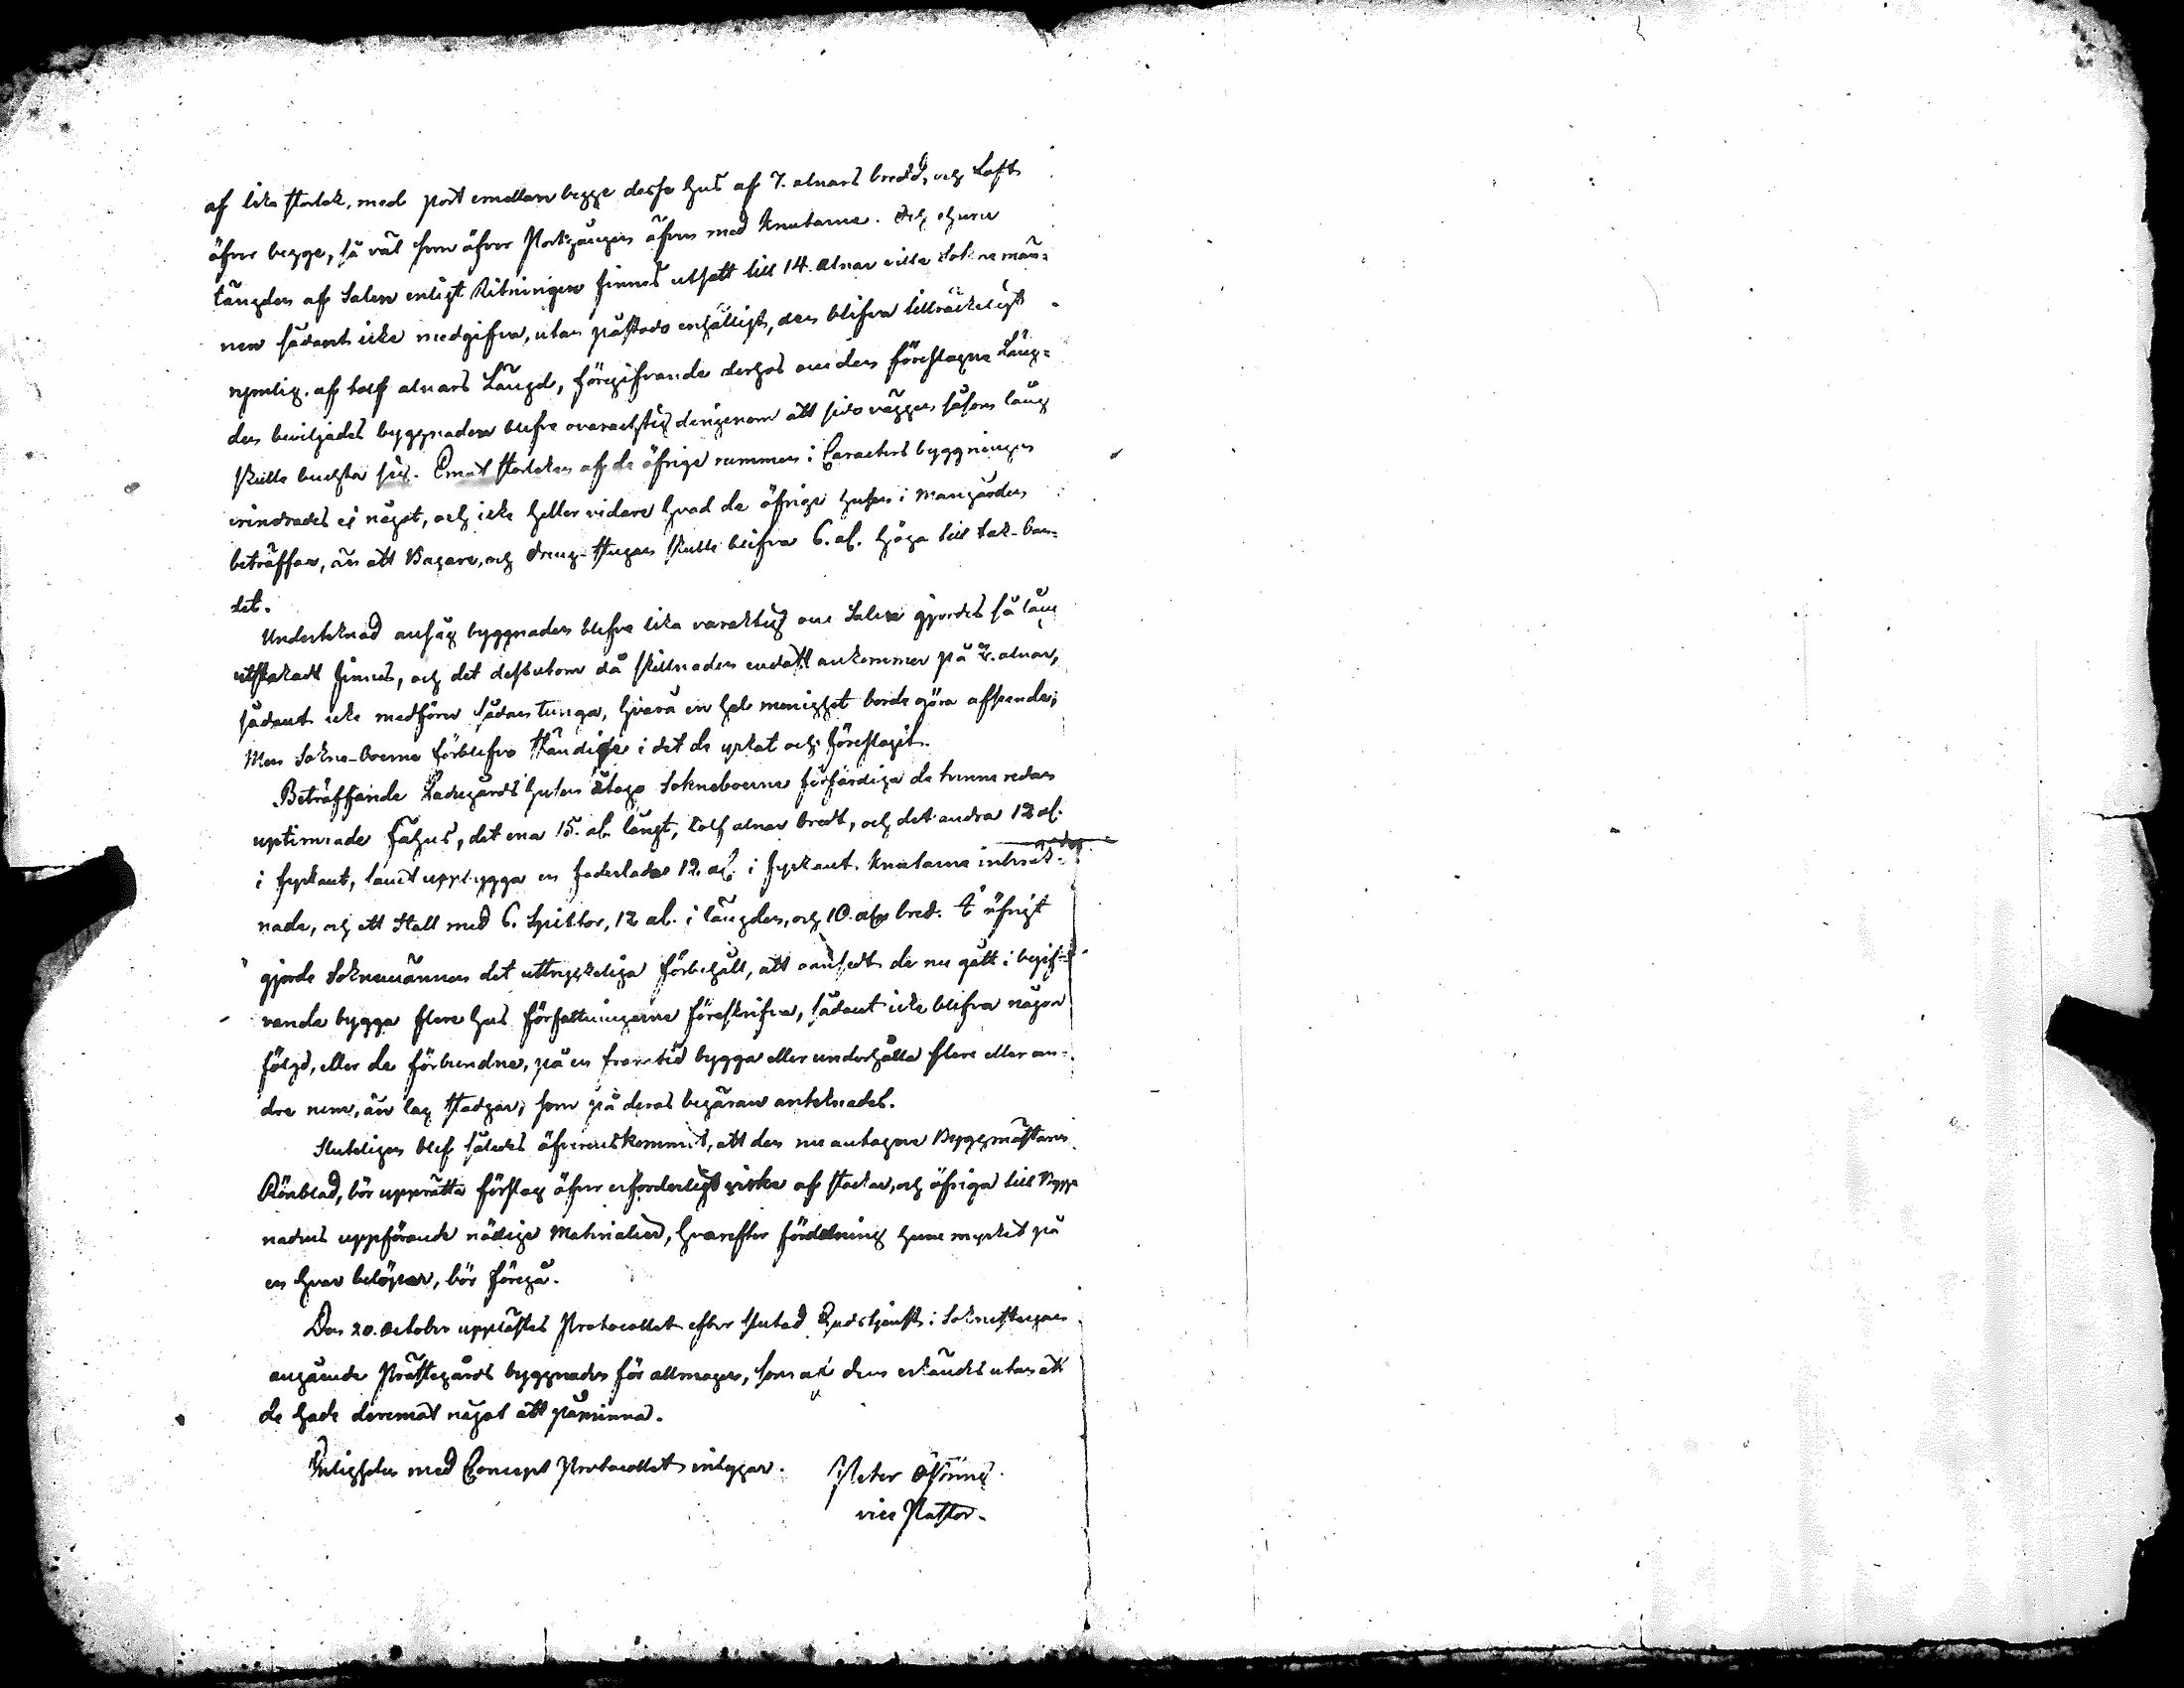 af lika storlek, med port emellan begge desse hus af 7. alnars bredd, och Loft
öfver begge, så väl som öfver Portgången äfven med knutarne. Och ehuru
längden af Salen enligt Ritningen finnes utsatt till 14. alnar ville Soknemän-
nen sådant icke medgifva, utan påstodo enhälligt, den blifva tillräckeligt
nemlig. af tolf alnars Längd, föregifvande derhos om den föreslagne Läng-
den beviljades byggnaden blefve ovaraktig derigenom att sido väggen såsom lång
skulle bugta sig. Emot storleken af de öfrige rummen i Caracters byggningen
erindrades ej något, och icke heller vidare hvad de öfrige husen i mangården
beträffar, än att Bagare, och dreng-stugan skulle blifva 6. al. höga till tak-ban-
det.
Undertecknad ansåg byggnaden blefve lika varaktig om Salen gjordes så lång
utstakadt finnes, och det dessutom då skillnaden endast ankommer på 2. alnar,
sådant icke medförer sådan tunga, hvarå en hel menighet borde göra afseende;
Men Sokne-boerne förblefvo ståndige i det de yrkat och föreslagit.
Beträffande Ladugårds husen åtogo Sokneboerne förfärdiga de tvenne redan
uptimrade Fähus, det ena 15. al. långt, tolf alnar bredt, och det andra 12 al.
i fyrkant, samt uppbygga en foderlada 12. al. i fyrkant. knutarne inberäk-
nade, och ett stall med 6. Spiltor, 12 al. i längden, och 10. al. bred. I öfrigt
gjorde Soknemännen det uttryckeliga förbehåll, att oansedt de nu gått i begif-
vande bygga flere hus författningarne föreskrifva, sådant icke blifva någon
följd, eller de förbundne, på en framtid bygga eller underhålla flere eller an-
dre rum, än lag stadgar; som på deras begäran anteknades.
Sluteligen blef således öfverenskommit, att den nu antagne Byggmästaren
Rönblad, bör upprätta förslag öfver erforderligt virke af stockar, och öfriga till Bygg
nadens uppförande nödige Materialier, hvarefter fördelning huru mycket på
en hvar belöper, bör föregå.
Den 20. October upplästes Protocollet efter slutad Gudstjenst i Soknestugan
angående Prästegårds byggnaden för allmogen, som af dem erkändes utan att
de hade deremot något att påminna.
Enligheten med Concept Protocollet intygar.
Peter
vice Pastor.